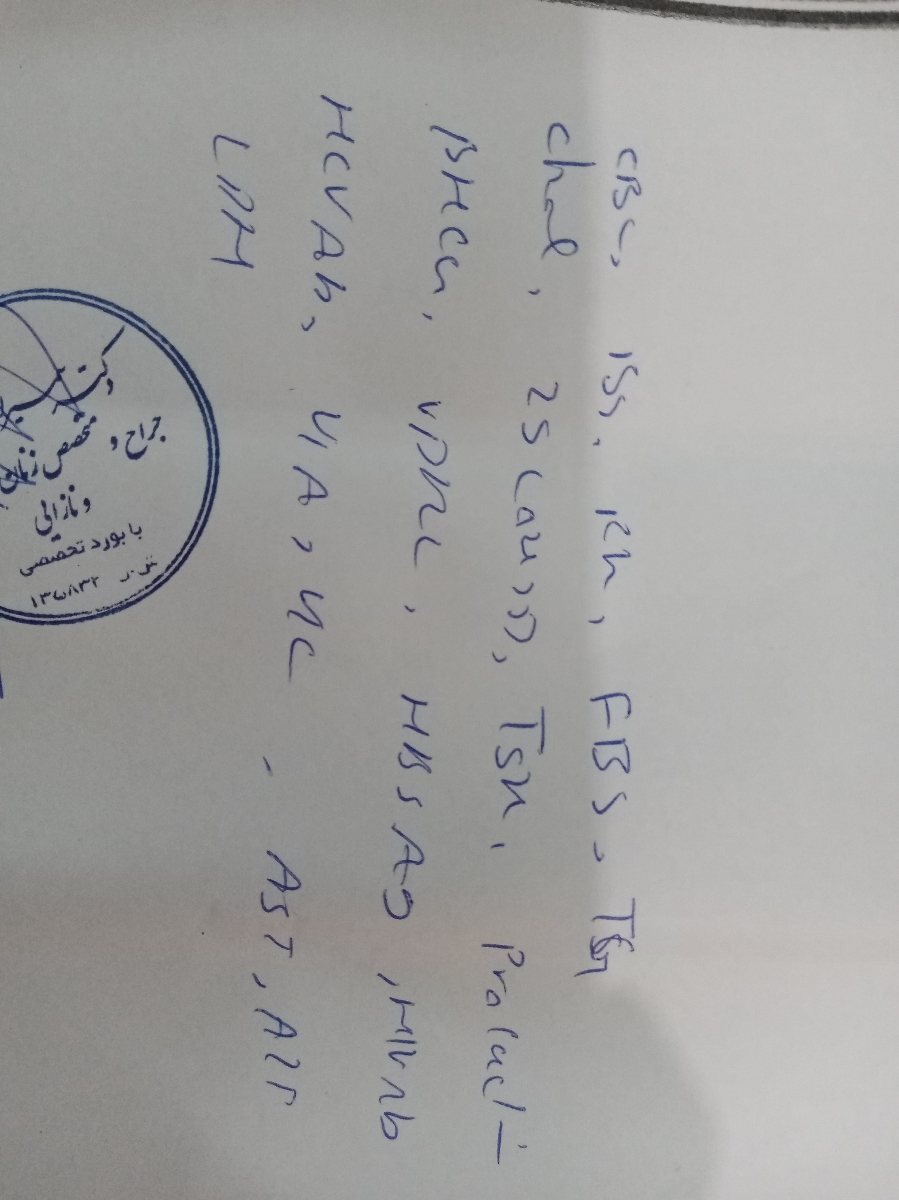 CBC, BS, Rh, FBS, TG
chol, 25(OH)D, TSH, Prolact
BHCG, VDRL, HBSAg, HIVAb
HCVAb, U/A, UC, AST, ALT
LDH
دکتر
جراح و
متخصص زنان
و نازائی
با بورد تخصصی